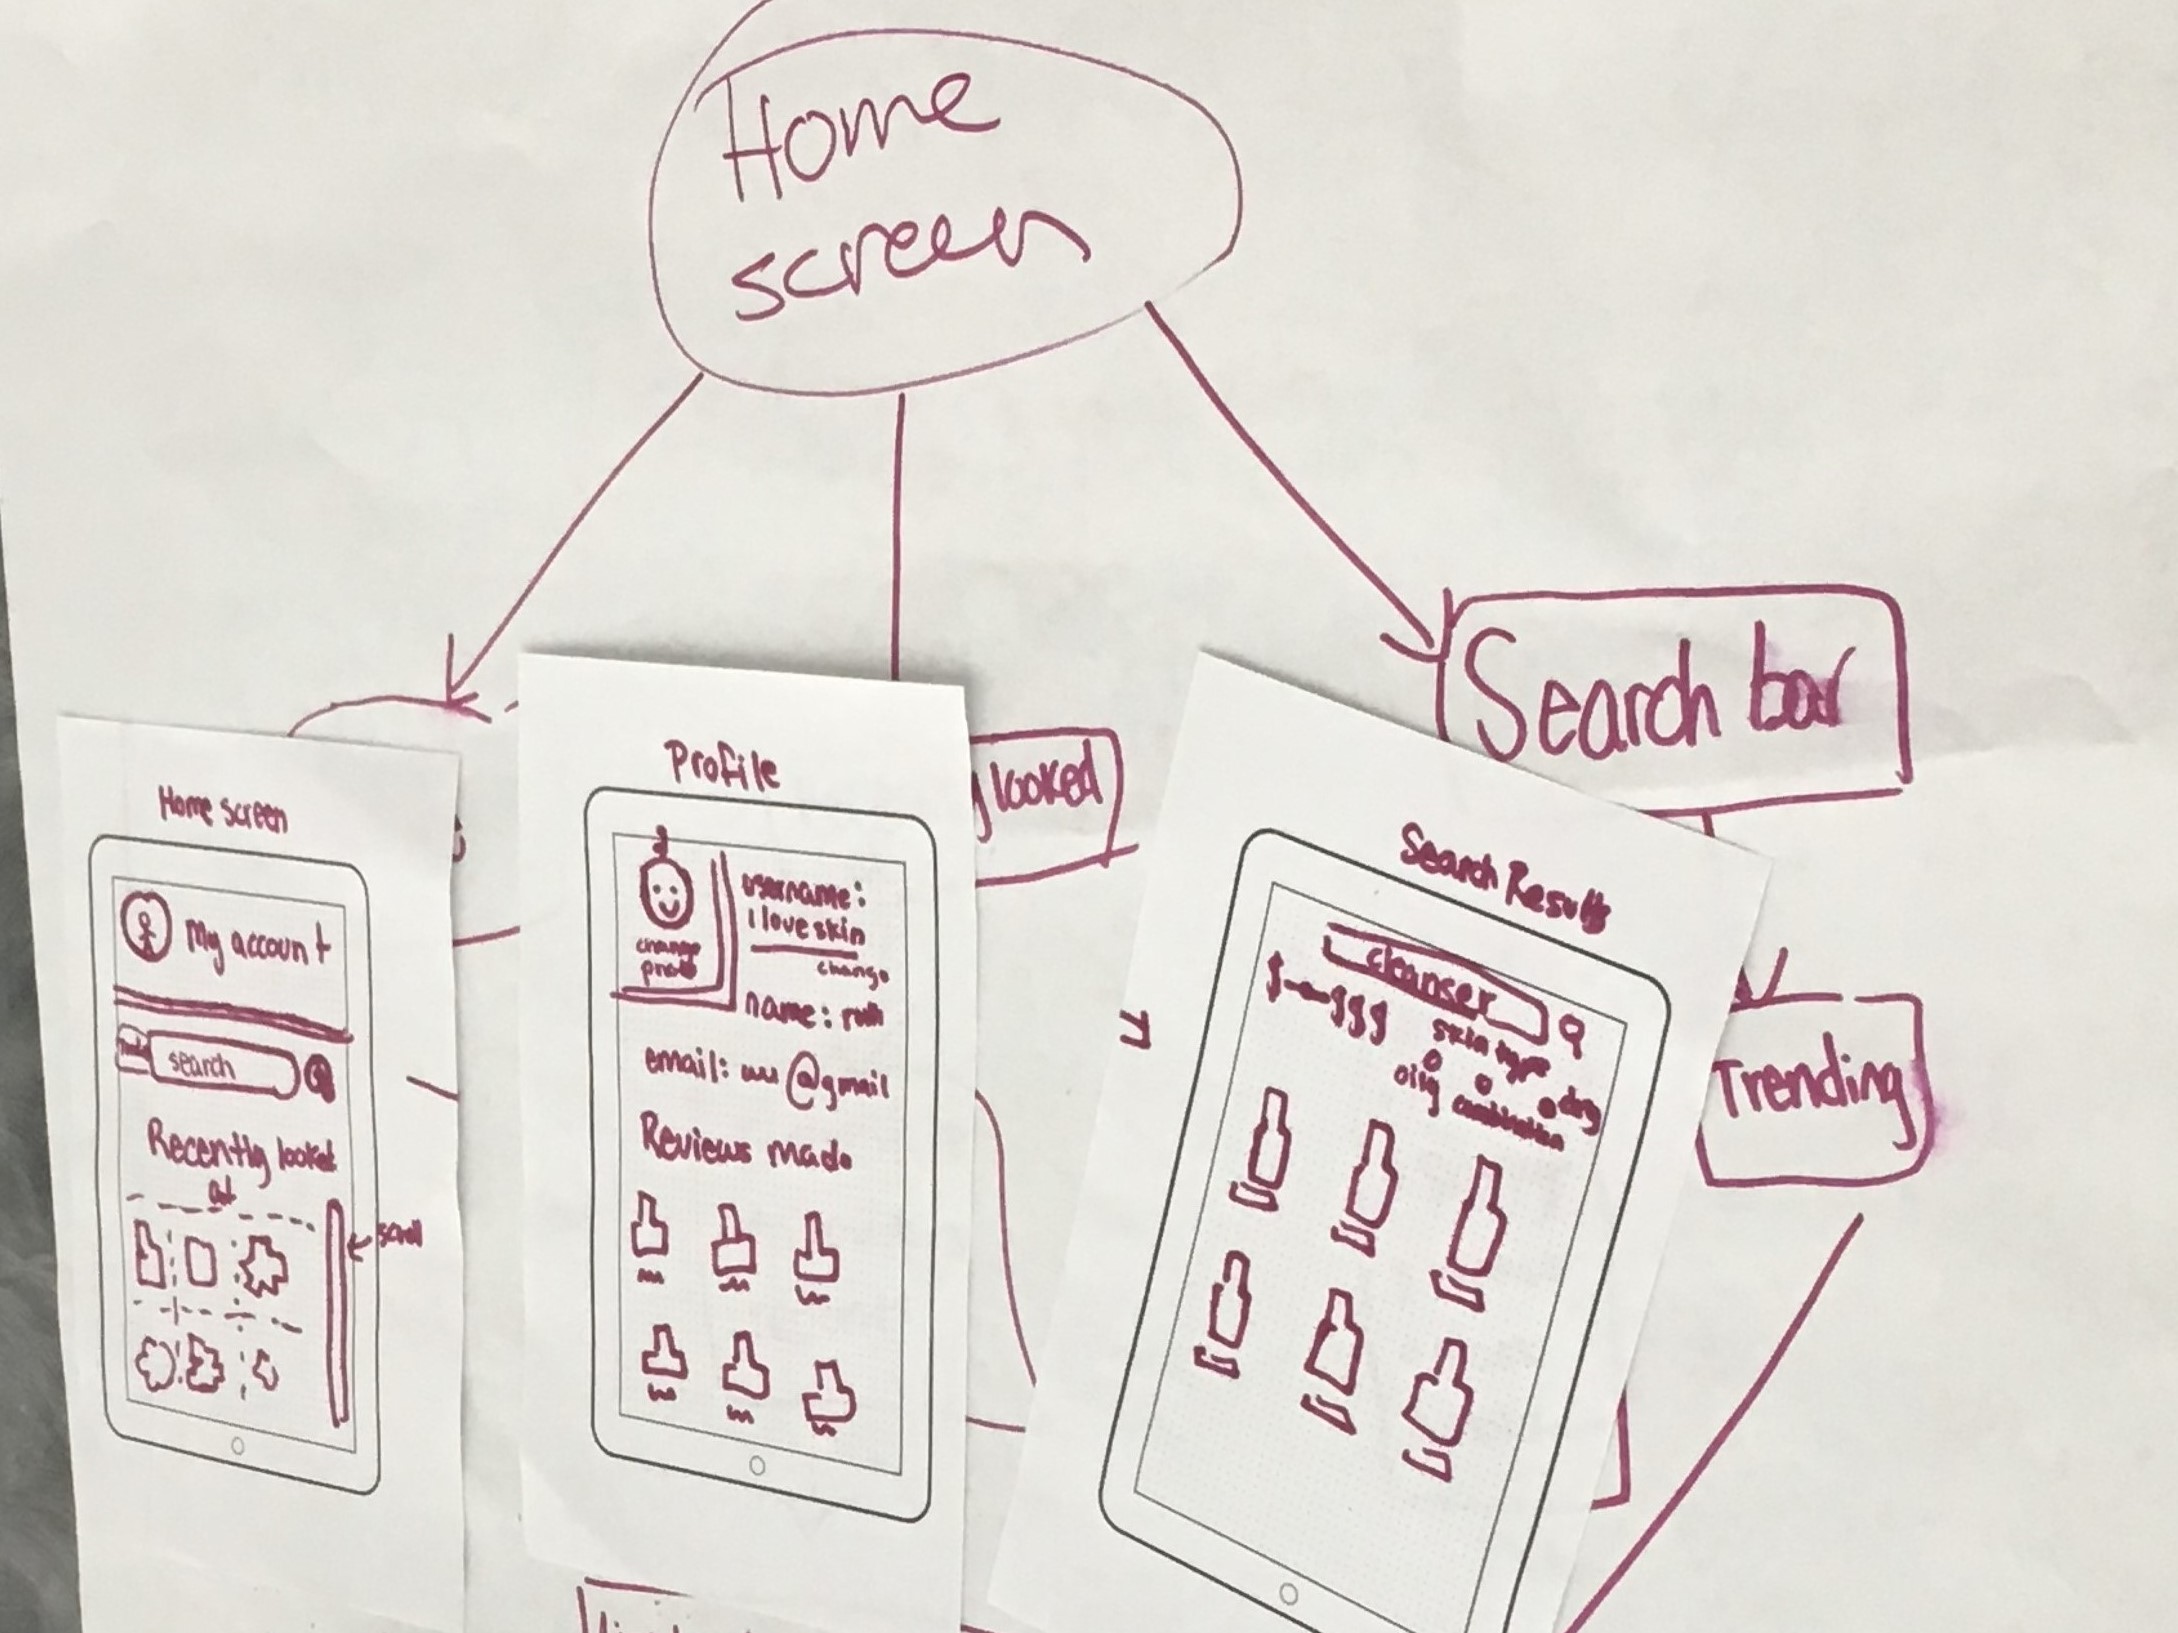 Home
screen
Search bar
looked
Trending
Home screen
My account
search
Recently looked
at
scroll
Profile
username:
i love skin
change
change
photo
name: ruth
email: @gmail
Reviews made
Search Results
cleanser
$ $$$
skin type
oily combination dry